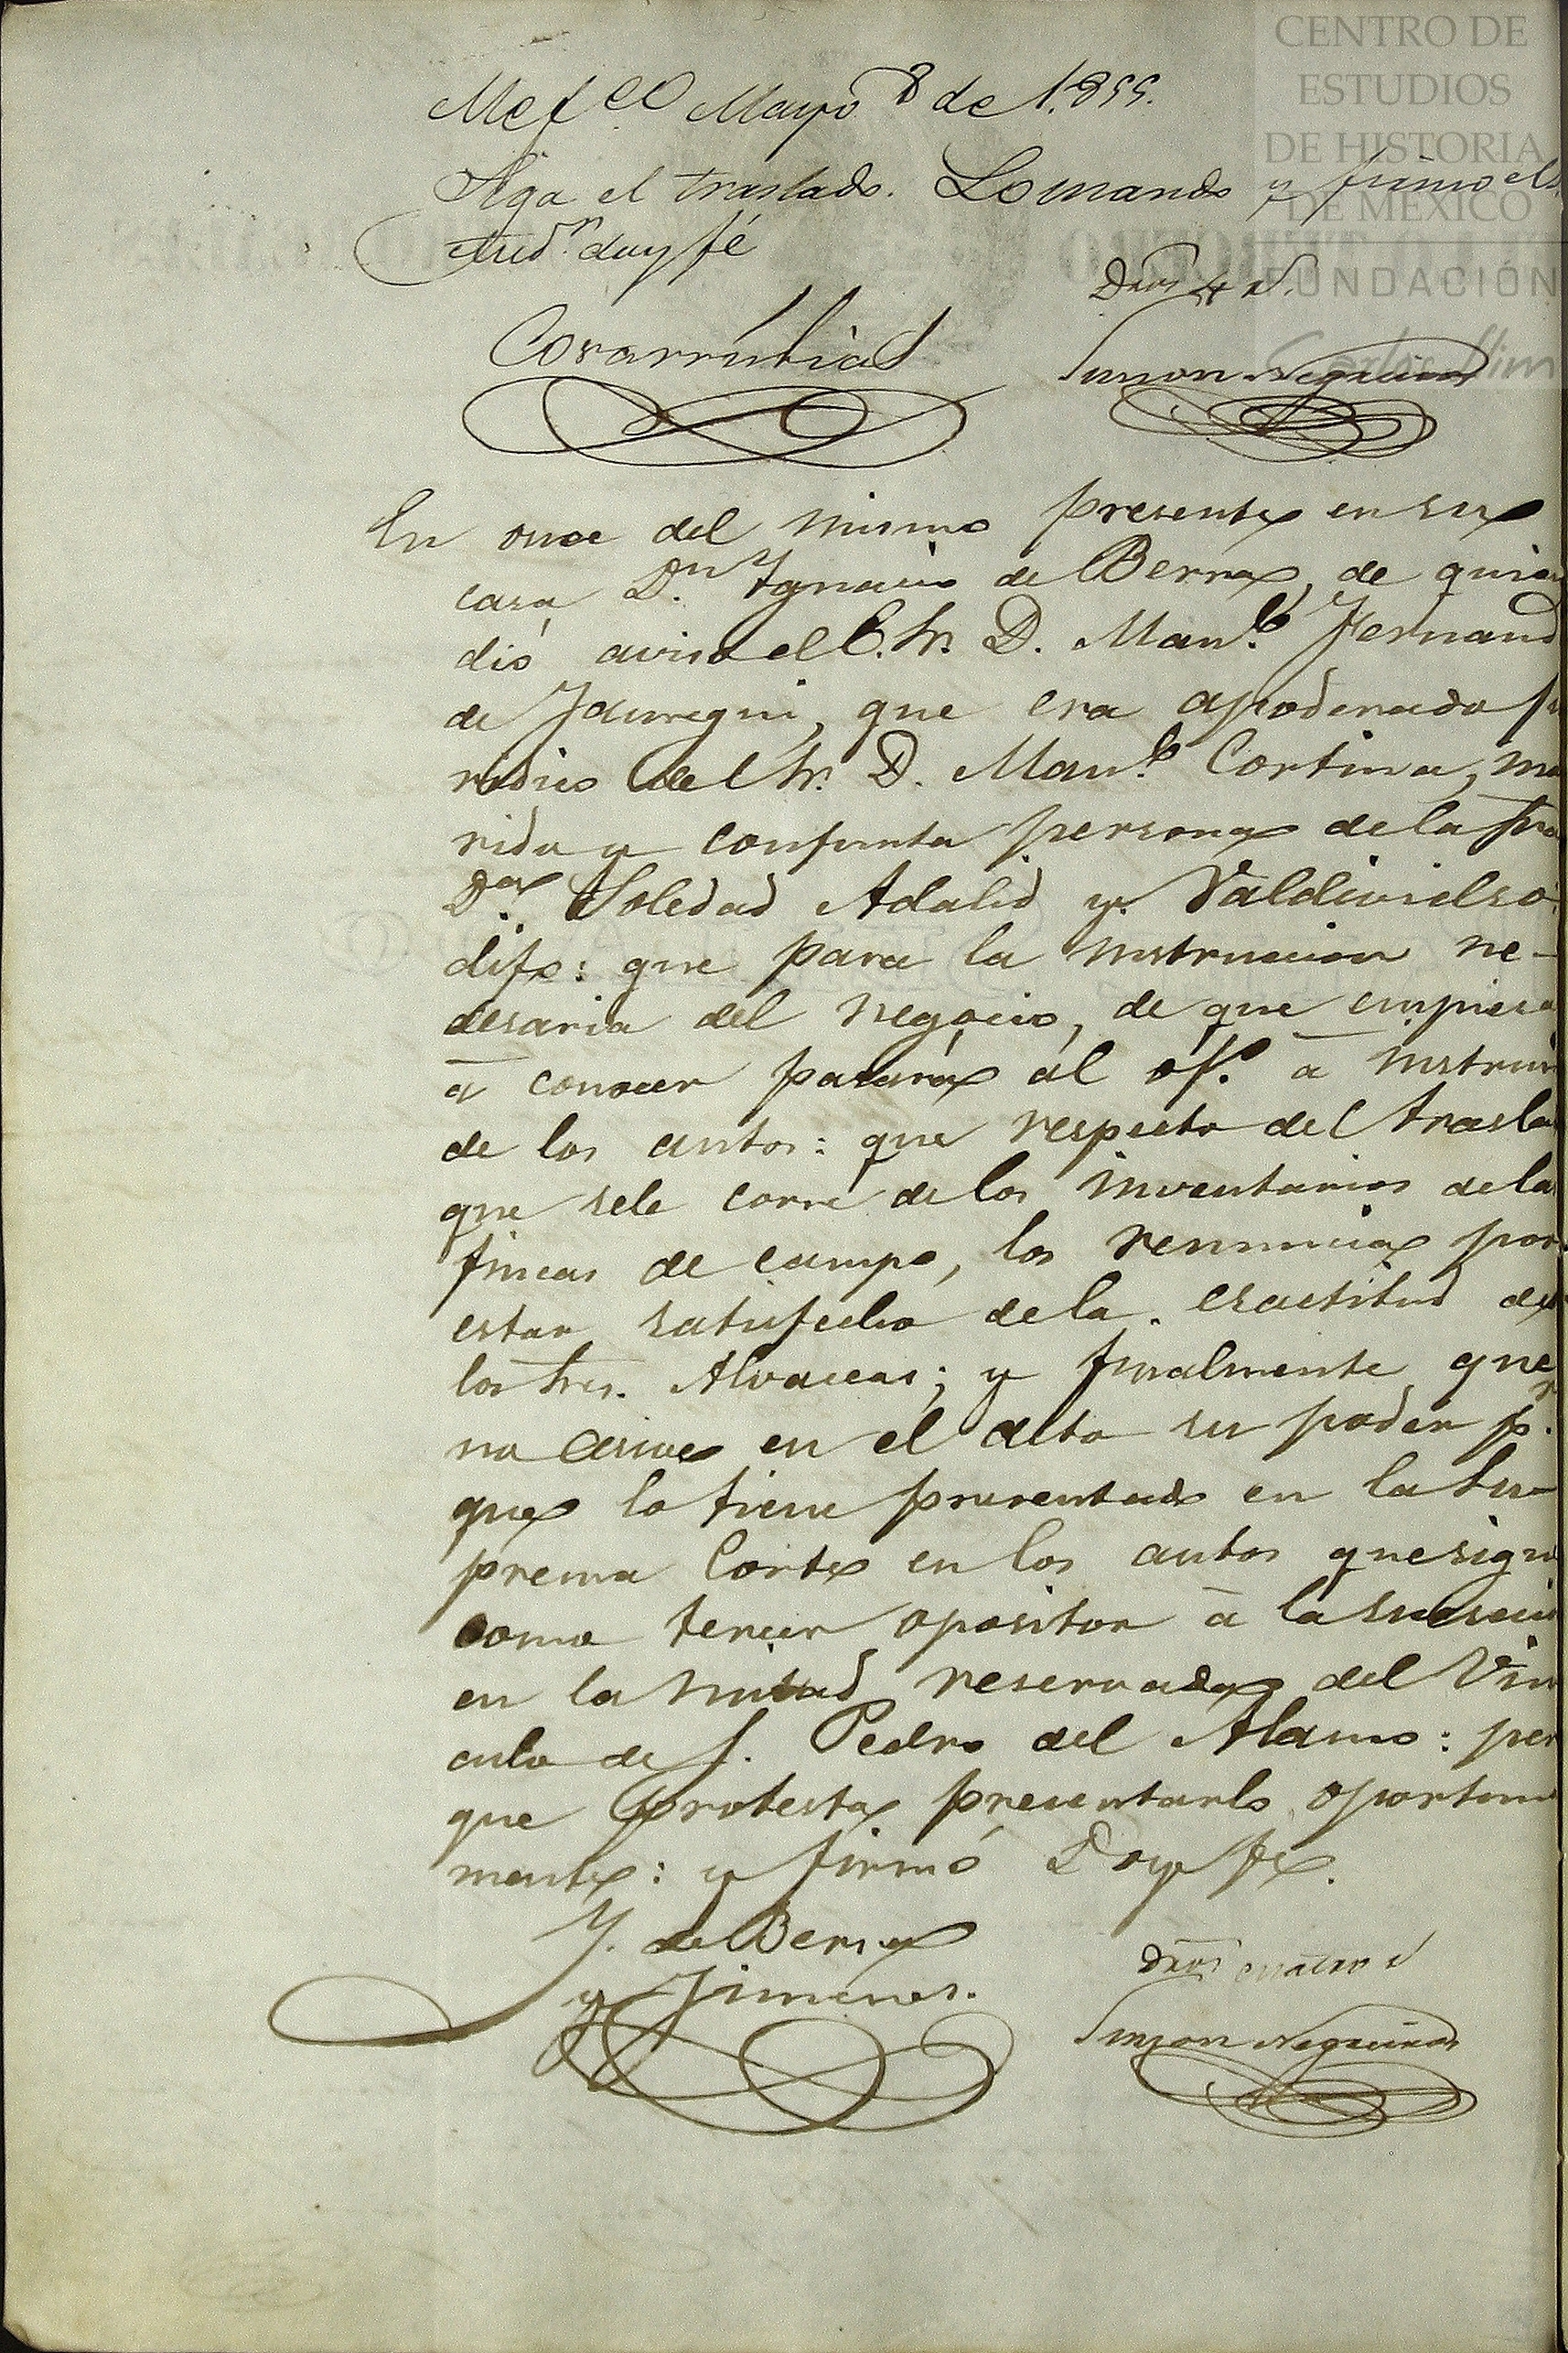 CENTRO DE
ESTUDIOS
DE HISTORIA
DE MEXICO
FUNDACIÓN
Carlos Slim
Mexco Mayo 8 de 1.855.
Siga el traslado. Lo mandó y firmó el S.
Aud.r doy fé
Dros 4 r.
Covarrubias
Simon Negreiros
En once del mismo presente en su
casa D.n Ygnacio de Berra, de quien
dió aviso el E. Sr. D. Man.l Fernand
de Jauregui, que era apoderado ju
ridico del Sr. D. Man.l Cortina, ma
rido y conjunta persona de la Sra
D.a Soledad Adalid y Valdivielso
dijo: que para la instruccion ne-
cesaria del negocio, de que empiesa
á conocer pasará al of.o á instruir
de los autos: que respecto del trasla
que sele corre de los inventarios dela
fincas de campo, los renuncia por
estar satisfecho dela esactitud de
los Sres. Alvaceas; y finalmente que
no esive en el acto su poder p.r
que lo tiene presentado en la Su-
prema Corte en los autos que sigu
como tercer opositor á la suceció
en la mitad reservada del Vin
culo de S. Pedro del Alamo: per
que protesta presentarlo oportuna
mente: y firmó Doy fe.
Y. de Berra
y Jimenes.
Dros cuatro r
Simon Negreiros